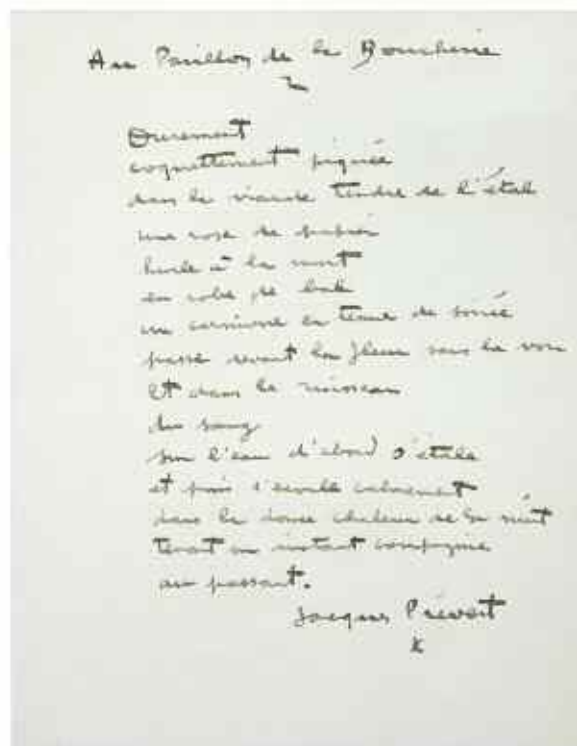 Au Pavillon de la Boucherie
Durement
coquettement piquée
dans la viande tendre de l'étal
une rose de papier
hurle à la mort
en robe de bal
un carnivore en tenue de soirée
passe devant la fleur sans la voir
et dans le ruisseau
du sang
sur l'eau d'abord s'étale
et puis s'écoule calmement
dans la douce chaleur de la nuit
tenant un instant compagnie
au passant.
Jacques Prévert